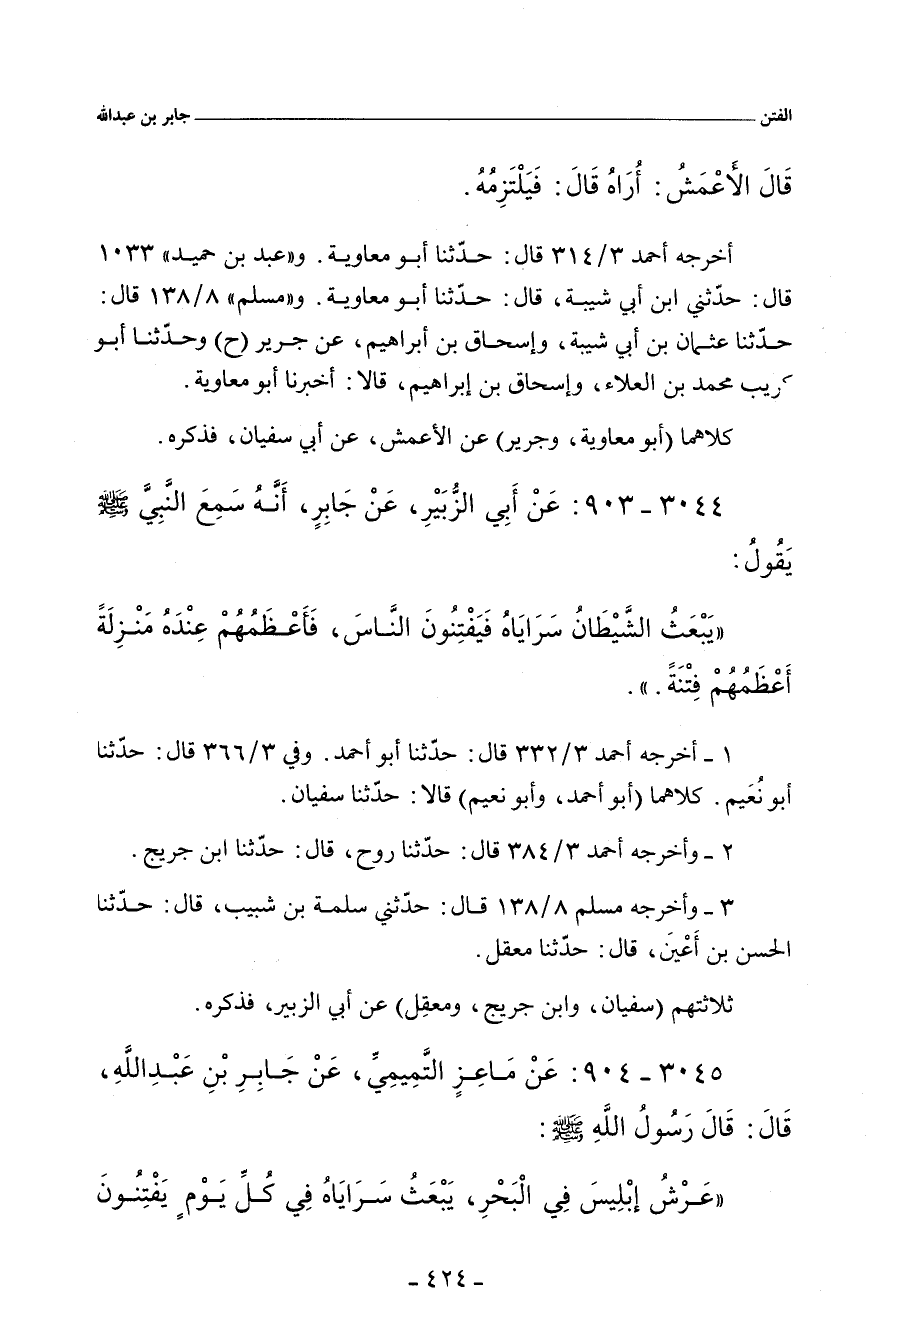 الفتن ــــــــــــــــ جابر بن عبدالله
قَالَ الأَعْمَشُ : أُرَاهُ قَالَ : فَيَلْتَزِمُهُ .
أخرجه أحمد ٣١٤/٣ قال : حدّثنا أبو معاوية . و«عبد بن حميد» ١٠٣٣
قال : حدّثني ابن أبي شيبة ، قال : حدّثنا أبو معاوية . و«مسلم» ١٣٨/٨ قال :
حدّثنا عثمان بن أبي شيبة ، وإسحاق بن أبراهيم ، عن جرير (ح) وحدّثنا أبو
كريب محمد بن العلاء ، وإسحاق بن إبراهيم ، قالا : أخبرنا أبو معاوية .
كلاهما (أبو معاوية ، وجرير) عن الأعمش ، عن أبي سفيان ، فذكره .
٣٠٤٤ - ٩٠٣ : عَنْ أَبِي الزُّبَيْرِ ، عَنْ جَابِرٍ ، أَنَّهُ سَمِعَ النَّبِيَّ ﷺ
يَقُولُ :
«يَبْعَثُ الشَّيْطَانُ سَرَايَاهُ فَيَفْتِنُونَ النَّاسَ ، فَأَعْظَمُهُمْ عِنْدَهُ مَنْزِلَةً
أَعْظَمُهُمْ فِتْنَةً . » .
١ - أخرجه أحمد ٣٣٢/٣ قال : حدّثنا أبو أحمد . وفي ٣٦٦/٣ قال : حدّثنا
أبو نُعَيم . كلاهما (أبو أحمد ، وأبو نعيم) قالا : حدّثنا سفيان .
٢ - وأخرجه أحمد ٣٨٤/٣ قال : حدّثنا روح ، قال : حدّثنا ابن جريج .
٣ - وأخرجه مسلم ١٣٨/٨ قال : حدّثني سلمة بن شبيب ، قال : حدّثنا
الحسن بن أَعْينَ ، قال : حدّثنا معقل .
ثلاثتهم (سفيان ، وابن جريج ، ومعقِل) عن أبي الزبير ، فذكره .
٣٠٤٥ - ٩٠٤ : عَنْ مَاعِزٍ التَّمِيمِيِّ ، عَنْ جَابِرِ بْنِ عَبْدِاللَّهِ ،
قَالَ : قَالَ رَسُولُ اللَّهِ ﷺ :
«عَرْشُ إِبْلِيسَ فِي الْبَحْرِ ، يَبْعَثُ سَرَايَاهُ فِي كُلِّ يَوْمٍ يَفْتِنُونَ
- ٤٢٤ -